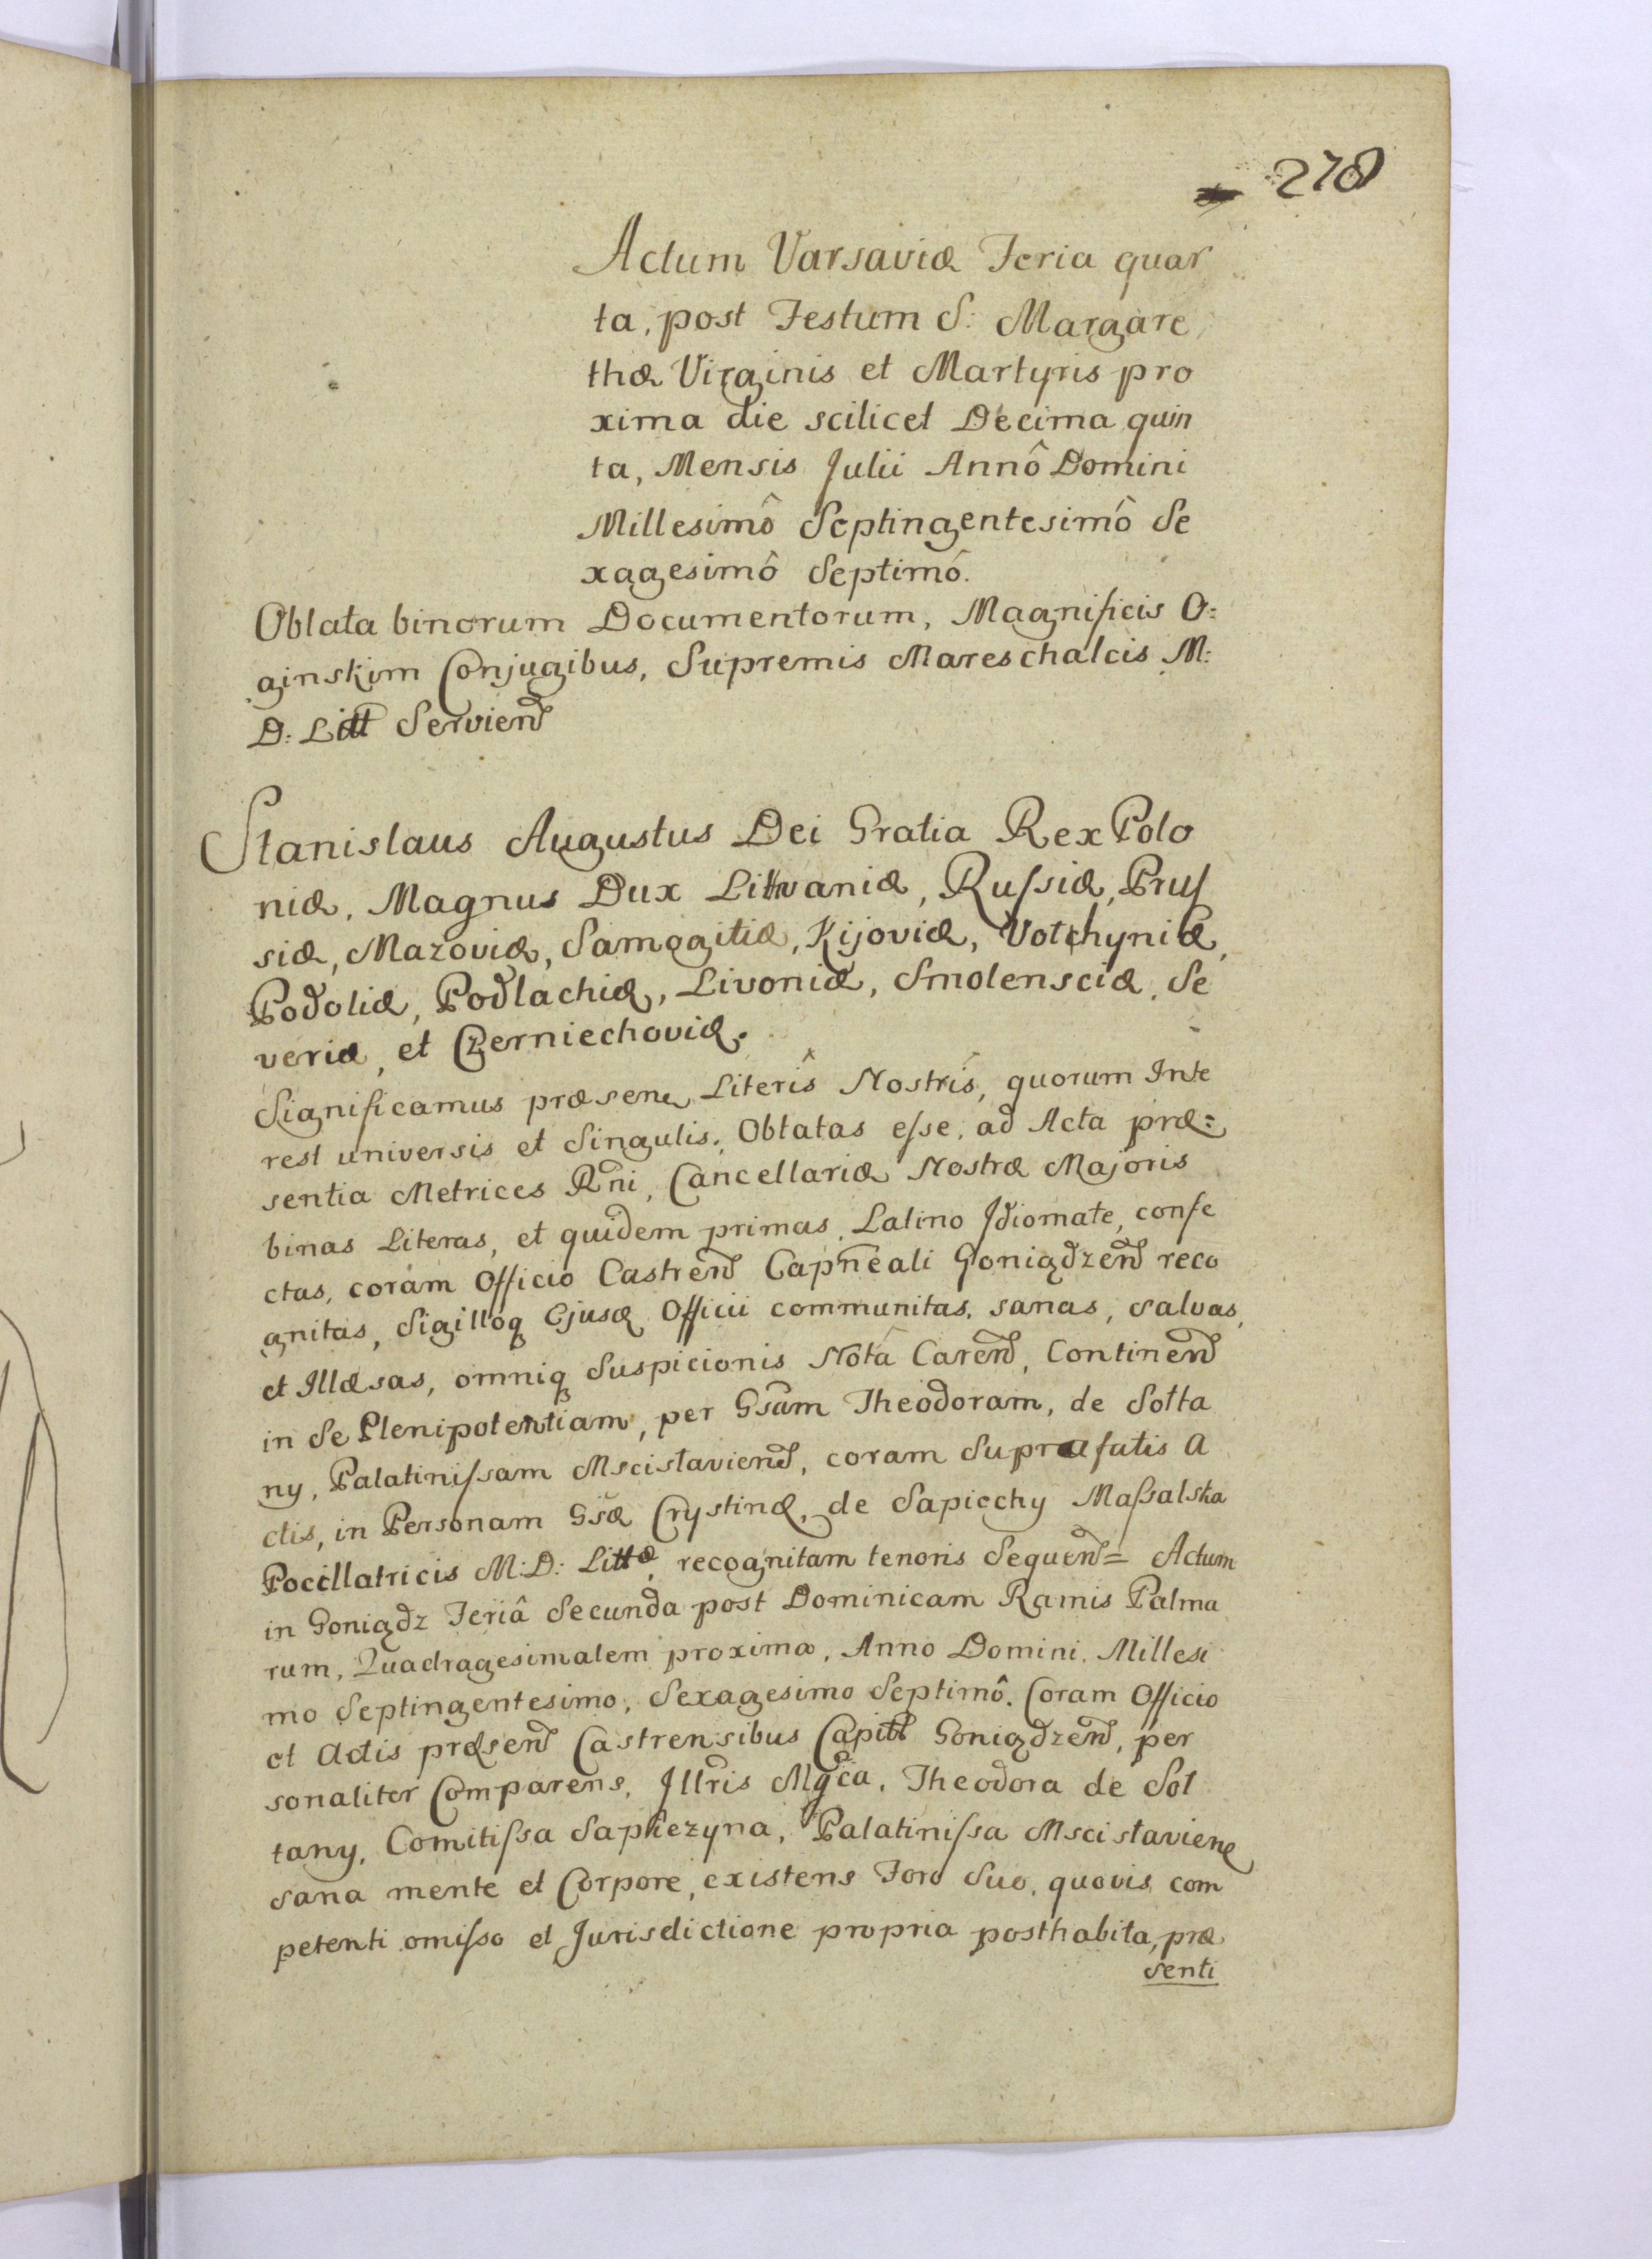 278
Actum Varsaviæ Feria quar
ta, post Festum S: Margare
thæ Virginis et Martyris pro
xima die scilicet Decima quin
ta, Mensis Julii Annô Domini
Millesimô Septingentesimô Se
xagesimô Septimô.
Oblata binorum Documentorum, Magnificis O:
ginskim Conjugibus, Supremis Mareschalcis M:
D: Litt Serviend
Stanislaus Augustus Dei Gratia Rex Polo
niæ, Magnus Dux Littvaniæ, Ruſsiæ, Pruſ
siæ, Mazoviæ, Samogitiæ, Kijoviæ, Volchyniæ,
Podoliæ, Podlachiæ, Livoniæ, Smolensciæ, Se
veriæ, et Czerniechoviæ.
Significamus præsen Literîs Nostrîs, quorum Inte
rest universis et Singulis, Oblatas eſse, ad Acta præ=
sentia Metrices Rni, Cancellariæ Nostræ Majoris
binas Literas, et quidem primas, Latino Jdiomate, confe
ctas, coram Officio Castrend Capneali Goniądzend reco
gnitas, Sigilloq Ejusq Officii communitas, sanas, salvas,
et Jllæsas, omniq Suspicionis Notâ Carend, Continend
in Se Plenipotentiam, per Gsam Theodoram, de Solta
ny, Palatiniſsam Mscislaviend, coram Suprafatis A
ctis, in Personam Gsæ Crystinæ, de Sapiechy Maſsalska
Pocillatricis M: D: Littæ, recognitam tenoris Sequend = Actum
in Goniądz Feriâ Secunda post Dominicam Ramis Palma
rum, Quadragesimalem proxima, Anno Domini, Millesi
mo Septingentesimo, Sexagesimo Septimô. Coram Officio
et Actis præsend Castrensibus Capitl Goniądzend, per
sonaliter Comparens, Jllris Mgca, Theodora de Sol
tany, Comitiſsa Sapiezyna, Palatiniſsa Mscislaviene
sana mente et Corpore, existens Foro Suo, quovis com
petenti omiſso et Jurisdictione propria posthabita, præ
senti